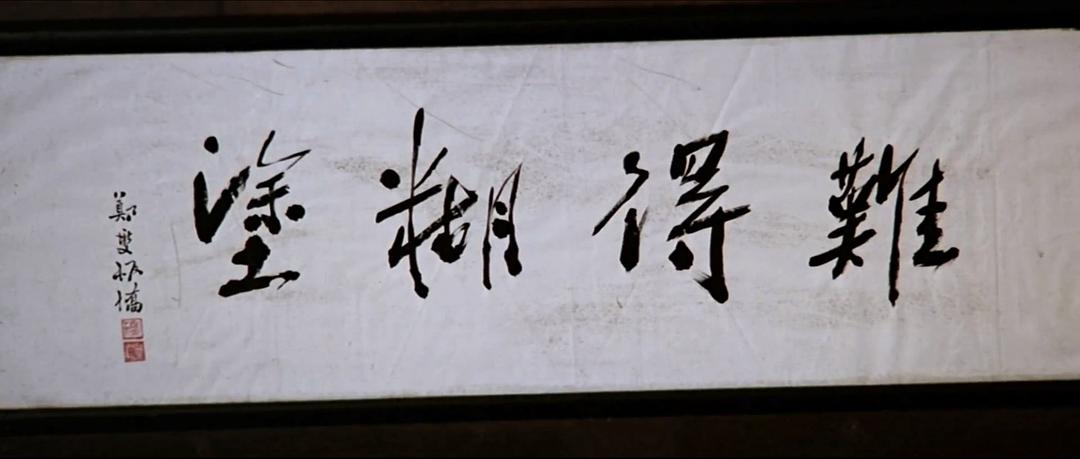 難得糊塗
鄭燮板橋